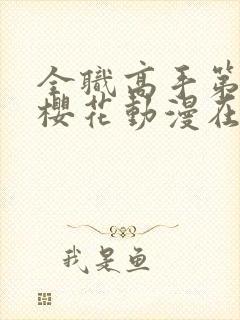 全職高手第
櫻花動漫在
我是鱼